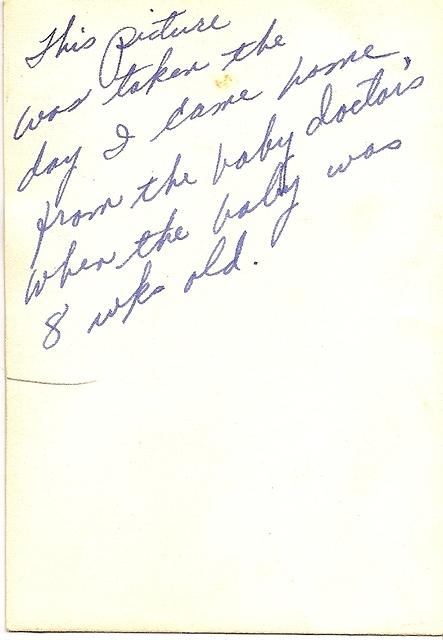 This Picture
was taken the
day I came home
from the baby doctor's
when the baby was
8 wks old.